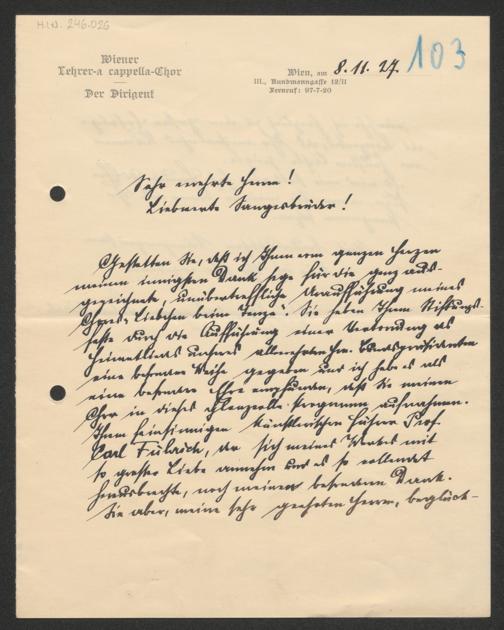 H.I.N. 246.026
Wiener
Lehrer-a cappella-Chor
Der Dirigent
Wien, am 8.11.27.
III., Kundmanngasse 12/11
Fernruf: 97-7-20
103
Sehr geehrte Herren!
Liebwerte Sangesbrüder!
Gestatten Sie, daß ich Ihnen vom ganzen Herzen
meinen innigsten Dank sage für die ganz aus-
gezeichnete, unübertreffliche Aufführung meines
Chores "Liebchen beim Tanze". Sie haben Ihrem Stiftungs-
feste durch die Aufführung einer Vertonung
unseres allverehrten Hrn. Bundespräsidenten
eine besondere Weihe gegeben und ich habe es als
eine besondere Ehre empfunden, daß Sie meinen
Chor in dieses Programm aufnahmen.
Ihrem feinsinnigen künstlerischen Führer Prof.
Carl Führich, der sich meines Werkes mit
so großer Liebe annahm und es so vollendet
herausbrachte, noch meinen besonderen Dank.
Sie aber, meine sehr geehrten Herren, beglück-